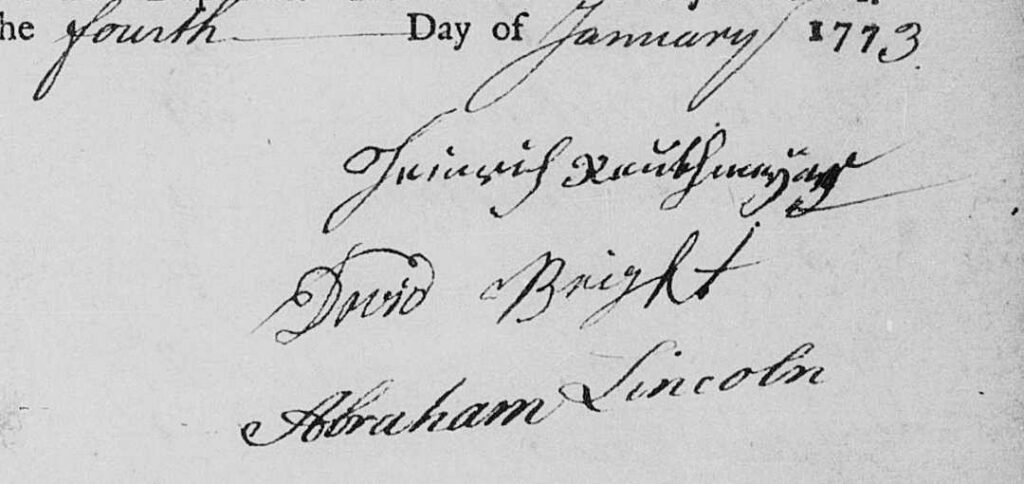 the fourth Day of January 1773
Heinrich
David Bright
Abraham Lincoln